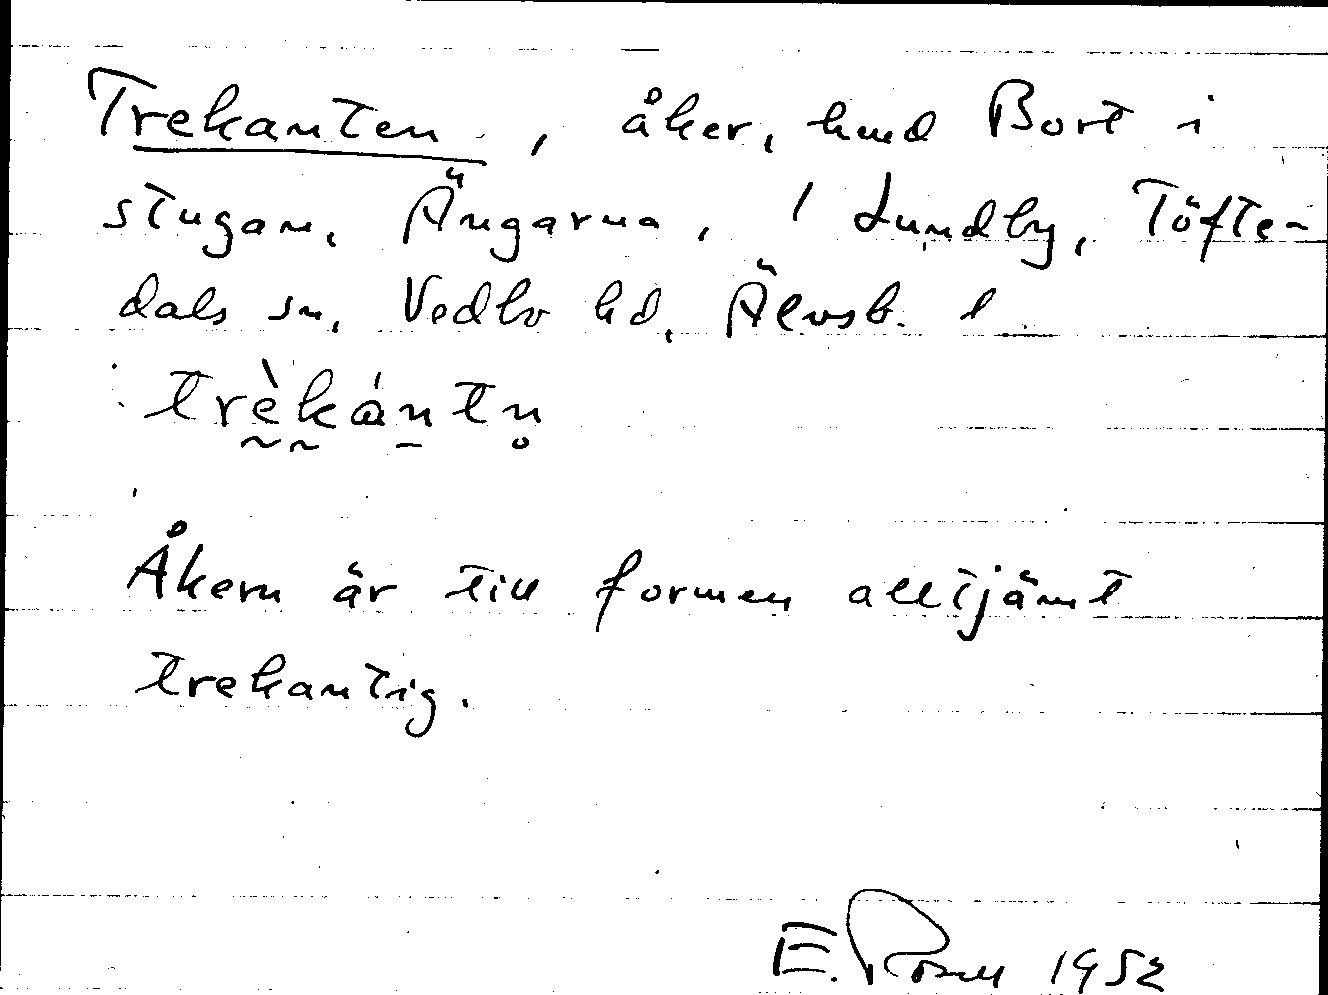 Trekanten, åker, hmd Bort i
stugan, Ängarna, 1 Lundby, Töfte-
dals sn, Vedbo hd, Älvsb. l
trèkántn̥
Åkern är till formen alltjämt
trekantig.
E. Rosell 1952